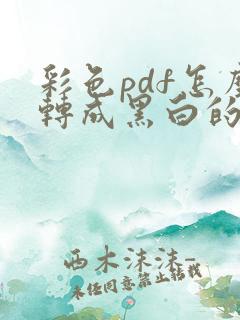 彩色pdf怎麼
轉成黑白的
西木沫沫-
未经同意禁止转载